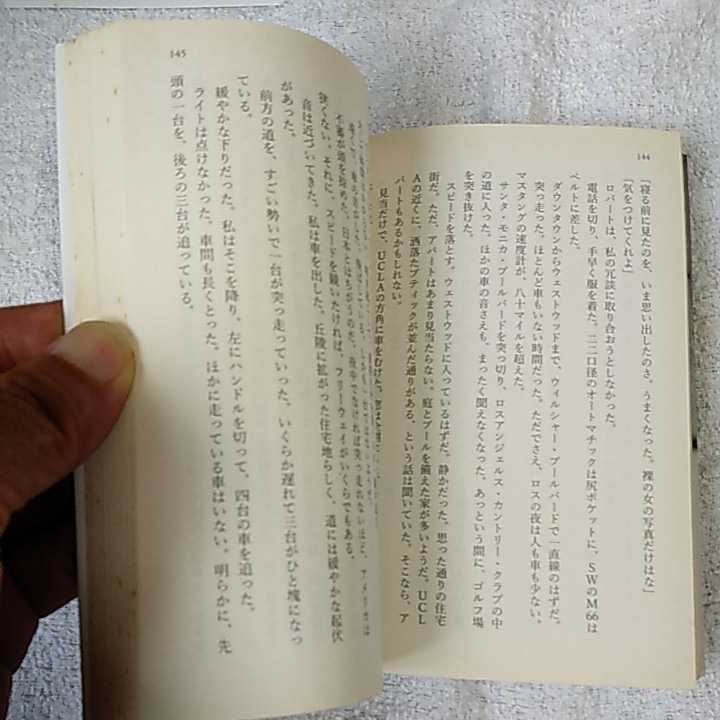 144
「寝る前に見たのを、いま思い出したのさ。うまくなった。裸の女の写真だけはな」
「気をつけてくれよ」
ロバートは、私の冗談に取り合おうとしなかった。
電話を切り、手早く服を着た。二二口径のオートマチックは尻ポケットに、SWのM66は
ベルトに差した。
ダウンタウンからウェストウッドまで、ウィルシャー・ブールバードで一直線のはずだ。
突っ走った。ほとんど車もいない時間だった。ただでさえ、ロスの夜は人も車も少ない。
マスタングの速度計が、八十マイルを超えた。
サンタ・モニカ・ブールバードを突っ切り、ロスアンジェルス・カントリー・クラブの中
の道に入った。ほかの車の音さえも、まったく聞えなくなった。あっという間に、ゴルフ場
を突き抜けた。
スピードを落とす。ウェストウッドに入っているはずだ。静かだった。思った通りの住宅
街だ。ただ、アパートはあまり見当たらない。庭とプールを備えた家が多いようだ。UCL
Aの近くに、洒落たブティックが並んだ通りがある、という話は聞いていた。そこなら、ア
パートもあるかもしれない。
見当だけで、UCLAの方角に車をむけた。
145
狭くない。それに、スピードを競いたければ、フリーウェイがいくらでもある。
音は近づいてきた。私は車を出した。丘陵に拡がった住宅地らしく、道には緩やかな起伏
があった。
前方の道を、すごい勢いで一台が突っ走っていった。いくらか遅れて三台がひと塊になっ
ている。
緩やかな下りだった。私はそこを降り、左にハンドルを切って、四台の車を追った。
ライトは点けなかった。車間も長くとった。ほかに走っている車はいない。明らかに、先
頭の一台を、後ろの三台が追っている。